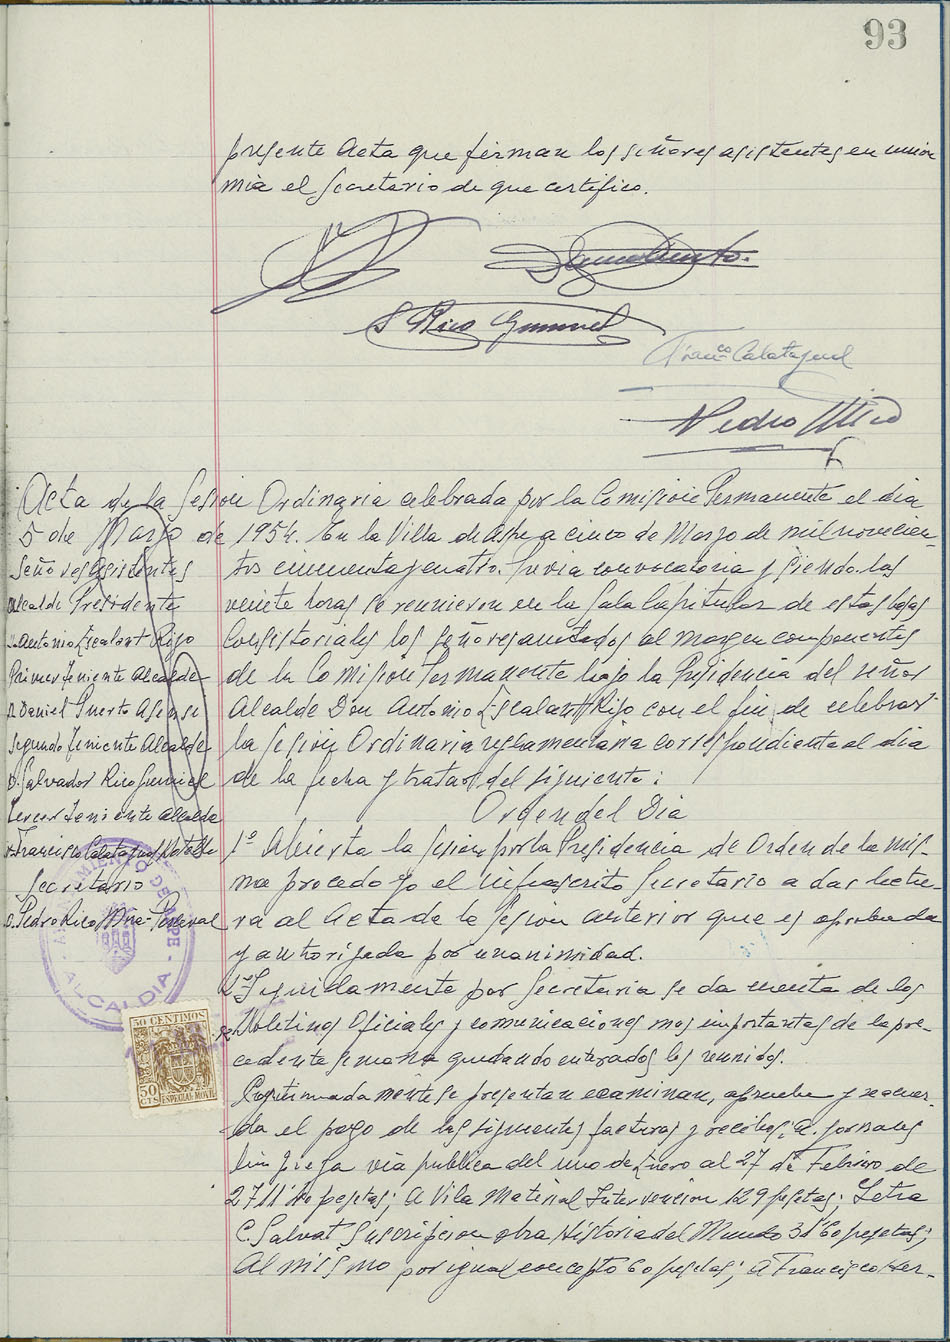 93
presente Acta que firman los señores asistentes en union
mia el Secretario de que certifico.
S Rico Gumiel
Franco Calatayud
Pedro Mico
Acta de la Sesion Ordinaria celebrada por la Comision Permanente el dia
5 de Marzo de 1954. En la Villa de Aspe a cinco de Marzo de mil novecien-
tos cincuenta y cuatro. Previa convocatoria y siendo las
veinte horas se reunieron en la Sala Capitular de estas Casas
Consistoriales los señores anotados al margen componentes
de la Comision Permanente bajo la Presidencia del señor
Alcalde Don Antonio Escalant Rizo con el fin de celebrar
la Sesion Ordinaria reglamentaria correspondiente al dia
de la fecha y tratar del siguiente:
Señores Asistentes
Alcalde Presidente
D. Antonio Escalant Rizo
Primer Teniente Alcalde
D Daniel Puerto Asensi
Segundo Teniente Alcalde
D. Salvador Rico Gumiel
Tercer Teniente Alcalde
D. Francisco Calatayud
Secretario
D. Pedro Rico
Orden del Dia
1º Abierta la Sesion por la Presidencia de Orden de la mis-
ma procedo yo el infrascrito Secretario a dar lectu-
ra al Acta de la Sesion anterior que es aprobada
y autorizada por unanimidad.
Seguidamente por Secretaria se da cuenta de los
Boletines Oficiales y comunicaciones mas importantes de la pre-
cedente semana quedando enterados los reunidos.
se presentan examinan, aprueba y acuer-
da el pago de las siguientes facturas y recibos: A. Jornales
limpieza via publica del uno de Enero al 27 de Febrero de
pesetas; A Vila Material Intervencion 129 pesetas; Letra
C. Salvat Suscripcion obra Historia del Mundo pesetas;
Al mismo por igual concepto 60 pesetas; A Francisco Her-
AYUNTAMIENTO DE ASPE - ALCALDIA -
50 CENTIMOS
50
CTS
ESPECIAL MOVIL